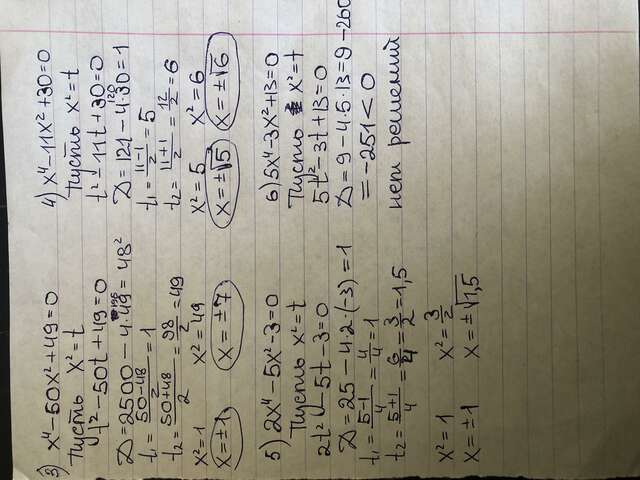 3) x⁴-50x²+49=0
Пусть x²=t
t²-50t+49=0
D=2500-4·49=48²
196
t₁=(50-48)/2=1
t₂=(50+48)/2=98/2=49
x²=1 x²=49
x=±1 x=±7
4) x⁴-11x²+30=0
Пусть x²=t
t²-11t+30=0
D=121-4·30=1
120
t₁=(11-1)/2=5
t₂=(11+1)/2=12/2=6
x²=5 x²=6
x=±√5 x=±√6
5) 2x⁴-5x²-3=0
Пусть x²=t
2t²-5t-3=0
D=25-4·2·(-3)=1
t₁=(5-1)/4=4/4=1
t₂=(5+1)/4=6/4=3/2=1,5
x²=1 x²=3/2
x=±1 x=±√1,5
6) 5x⁴-3x²+13=0
Пусть x²=t
5t²-3t+13=0
D=9-4·5·13=9-260
=-251<0
нет решений